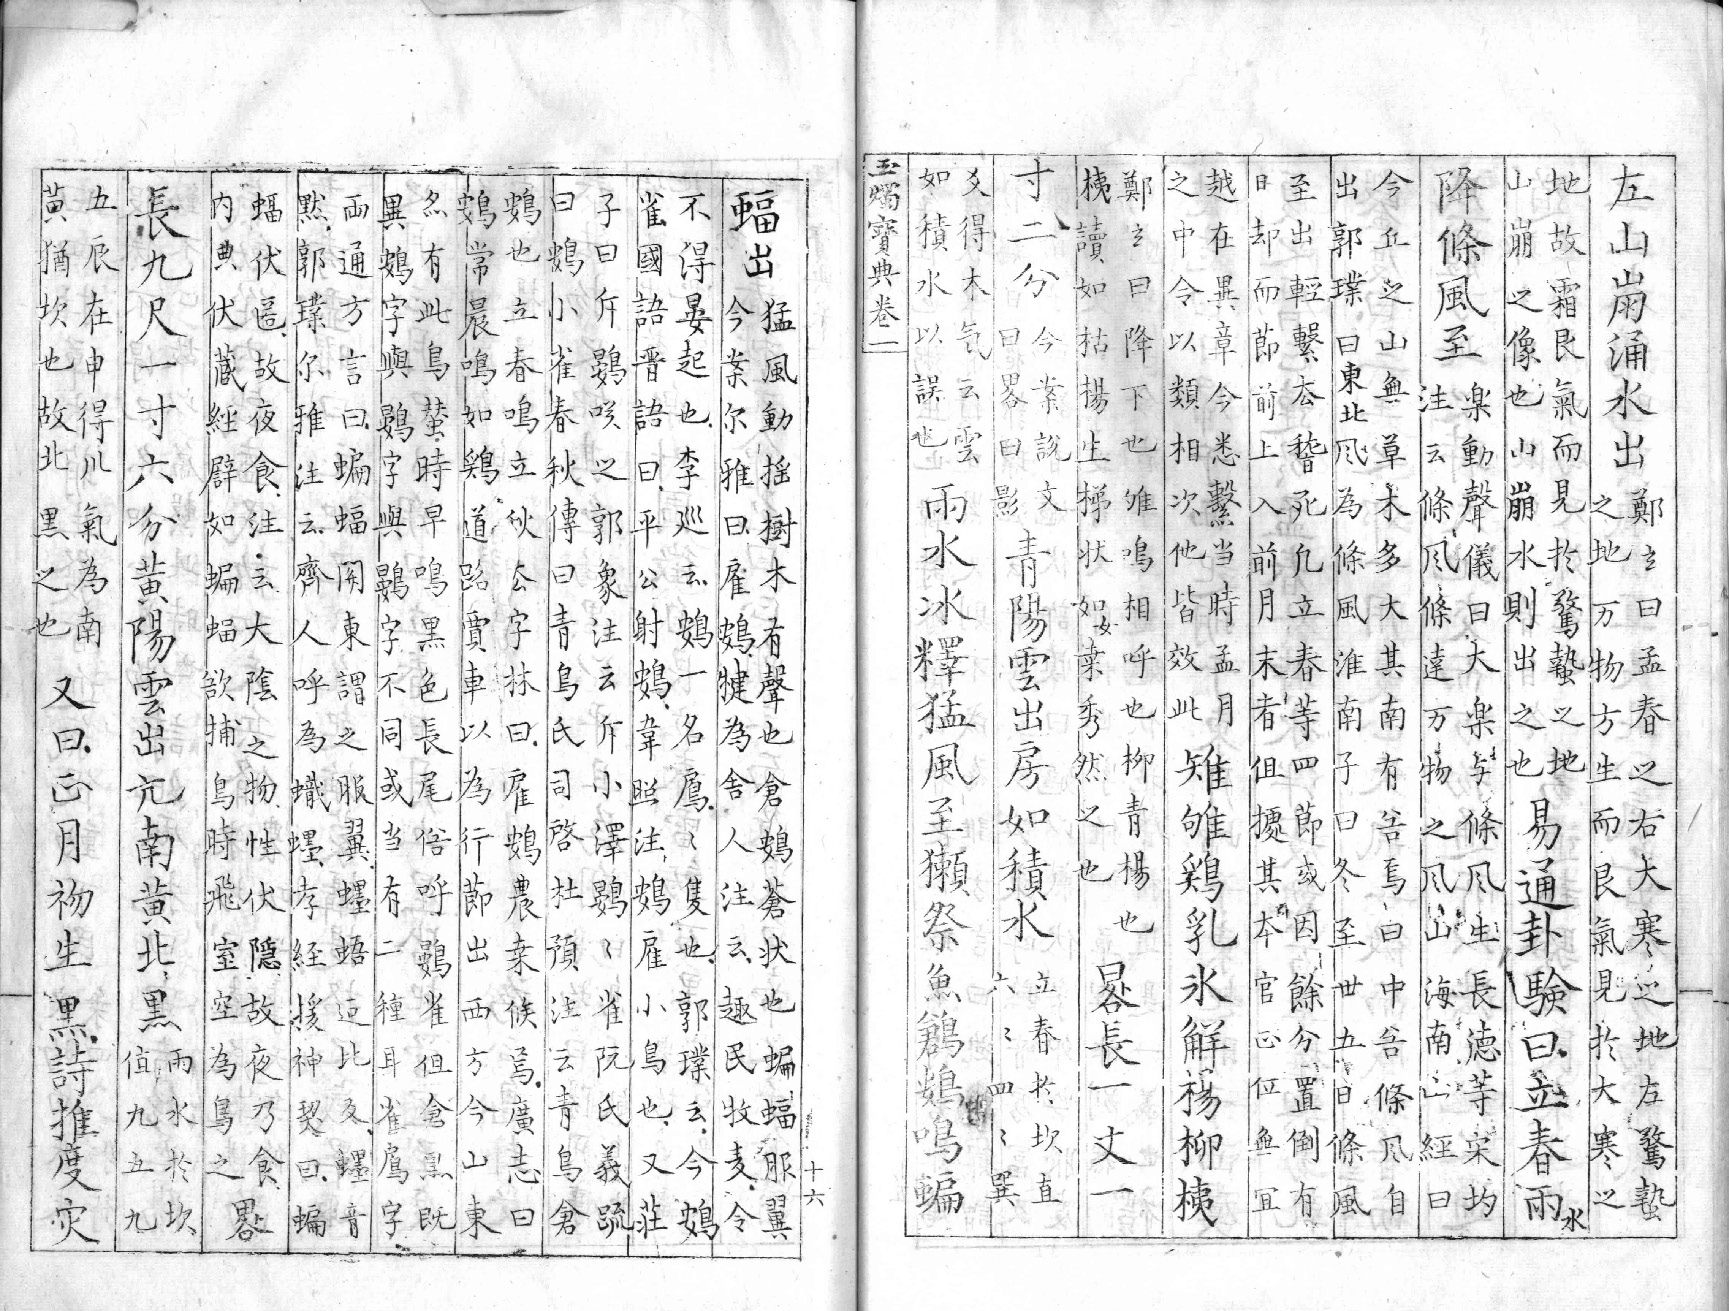 左山崩涌水出鄭玄曰孟春之右大寒之地左驚蟄
之地万物方生而艮氣見於大寒之
地故霜艮氣而見於驚蟄之地
山崩之像也山崩水則出之也易通卦驗曰立春雨水
降條風至楽動聲儀曰大楽与條風生長德等宋均
注云條風條達万物之風山海南山經曰
令丘之山無草木多大其南有谷焉曰中谷條風自
出郭璞曰東北風為條風淮南子曰冬至卌五日條風
至出輕繫去稽死凢立春等四節或因餘分置倒有
日却而節前上入前月末者但攄其本官正位無宜
越在異章今悉繫当時孟月
之中令以類相次他皆效此雉雊鷄乳氷解楊柳梯
鄭玄曰降下也雉鳴相呼也柳青楊也
梯讀如枯楊生梯状如女桒秀然之也晷長一丈一
寸二分今案說文曰晷曰影青陽雲出房如積水立春於坎直六〻四〻巽
爻得木气云雲
如積水以誤也雨水冰釋猛風至獺祭魚鶬鷃鳴蝙
玉燭寶典卷一
蝠出猛風動搖樹木有聲也倉鷃蒼状也蝙蝠服翼
今案尔雅曰雇鷃犍為舎人注云趣民牧麦令
不得晏起也李巡云鷃一名鳸〻隻也郭璞云今鷃
雀國語晋語曰平公射鷃韋照注鷃雇小鳥也又莊
子曰斥鷃咲之郭象注云斥小澤鷃〻雀阮氏義疏
曰鷃小雀春秋傳曰青鳥氏司啓杜預注云青鳥倉
鷃也立春鳴立秋去字林曰雇鷃農桒候焉廣志曰
鷃常晨鳴如鷄道路賣車以為行節出西方今山東
名有此鳥蟄時早鳴黒色長尾俗呼鷃雀但倉黒既
異鷃字與鷃字與鷃字不同或当有二種耳雀鳸字
両通方言曰蝙蝠関東謂之服翼䘃蟔𨒪比反䘃音
黙郭璞尔雅注云齊人呼為蟙䘃孝經援神契曰蝙
蝠伏匿故夜食注云大陰之物性伏隱故夜乃食
内典伏藏經辟如蝙蝠欲捕鳥時飛室空為鳥之晷
長九尺一寸六分黄陽雲出亢南黄北黒雨水於坎值九五九
五辰在申得川氣為南
黄猶坎也故北黒之也又曰正月初生黒詩推度灾
十六